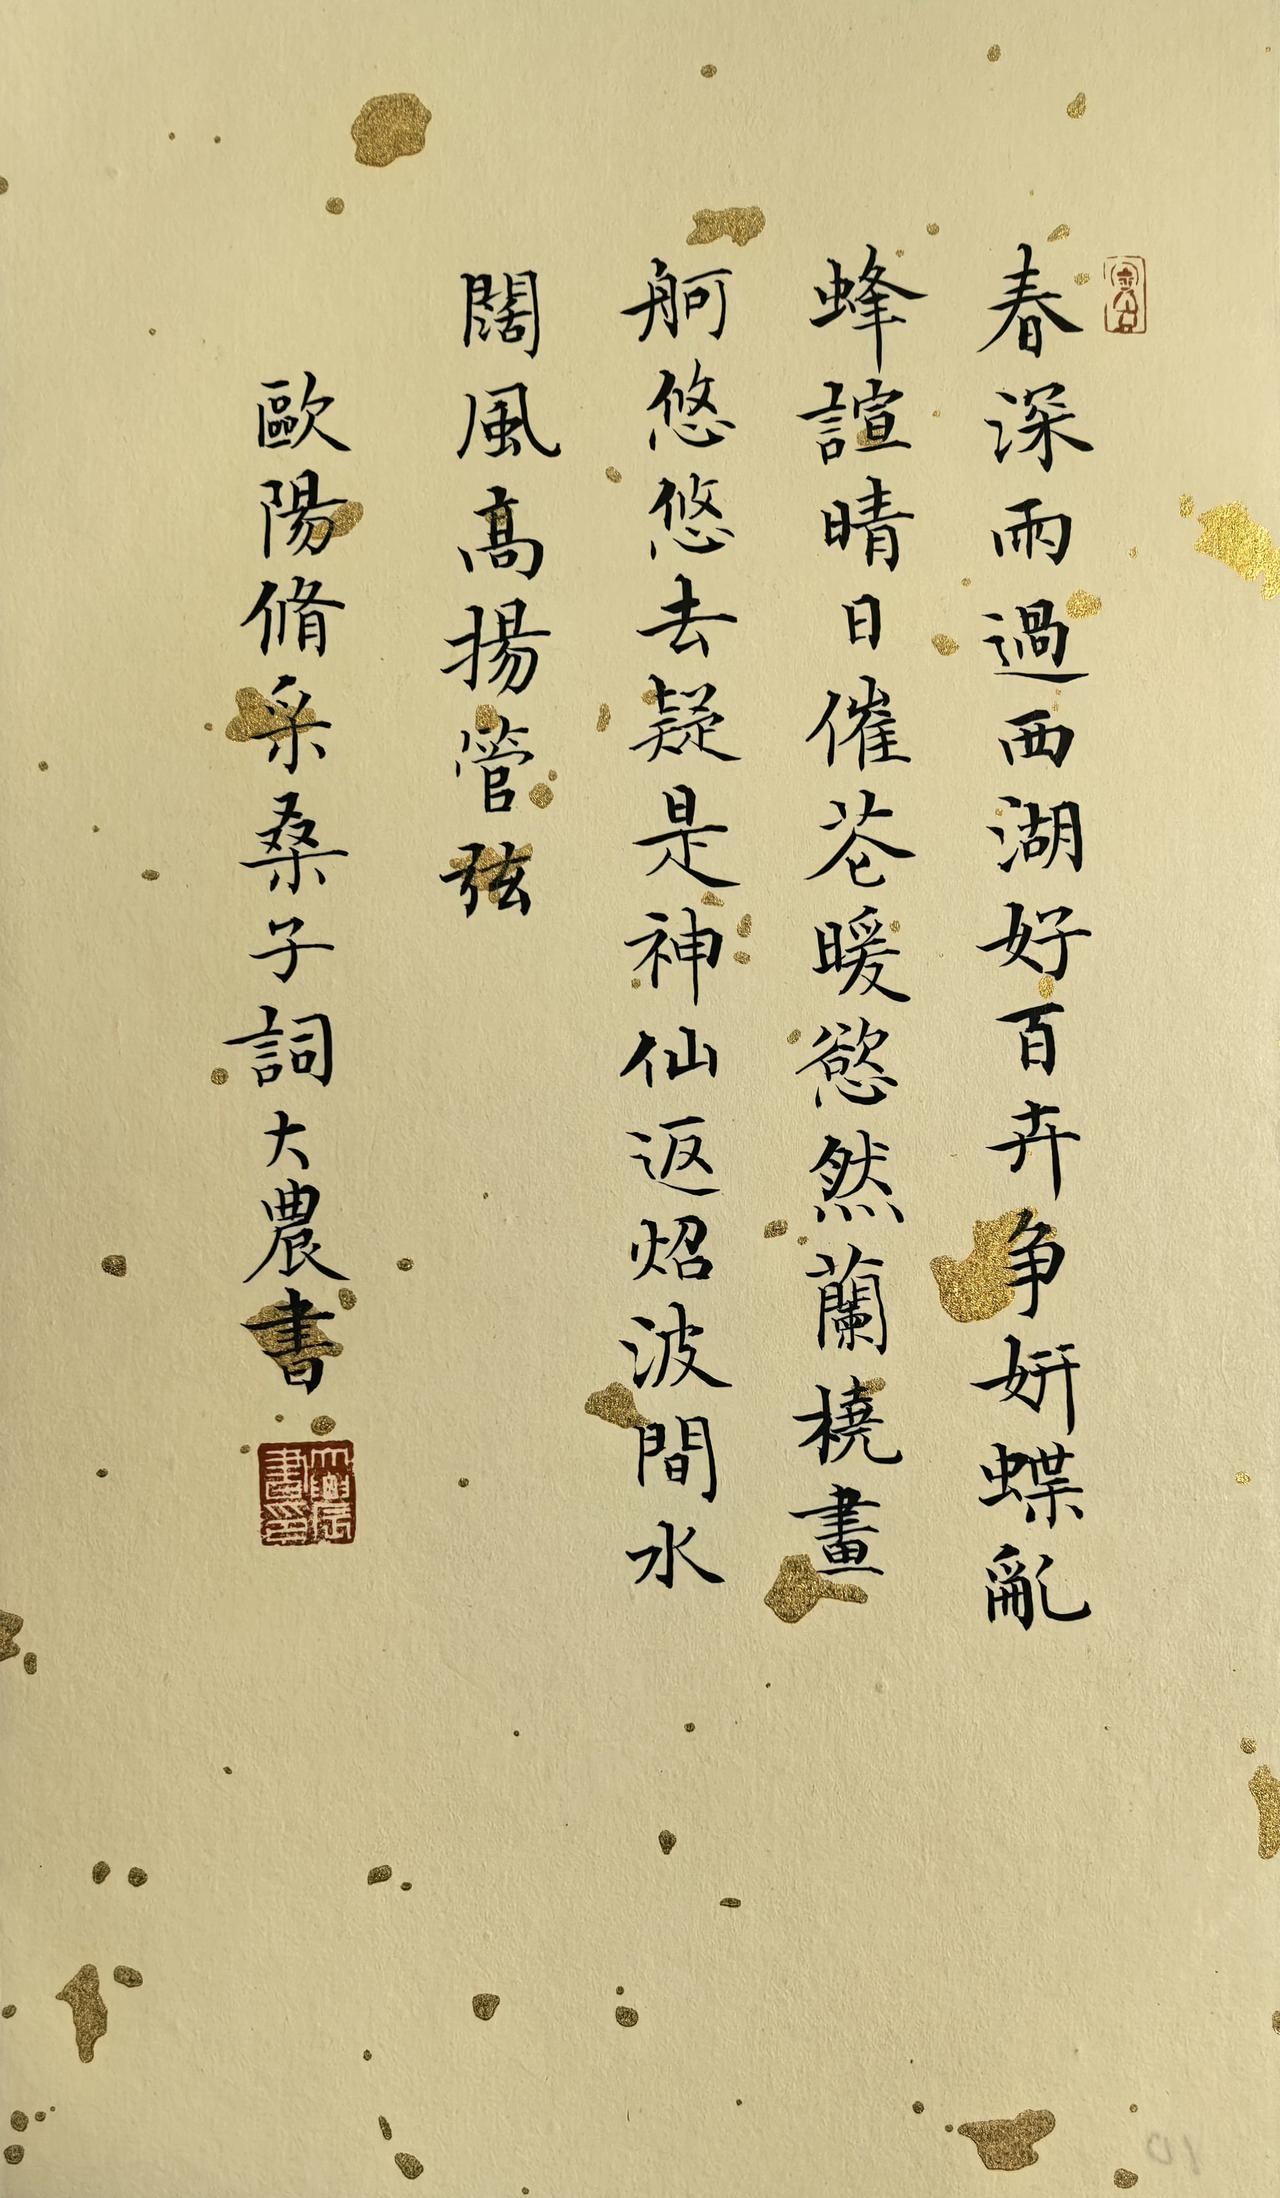 春深雨過西湖好百卉争妍蝶亂
蜂諠晴日催苍暖慾然蘭橈畫
舸悠悠去疑是神仙返炤波間水
闊風高揚管弦
歐陽脩采桑子詞大農書
大農書印